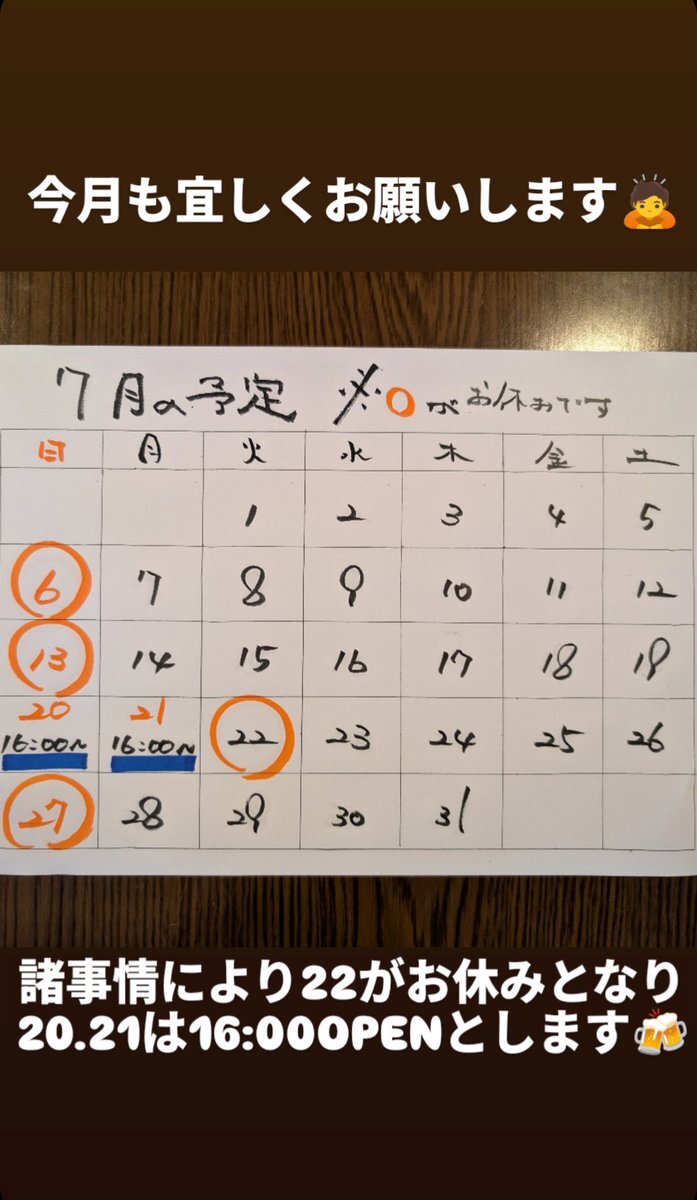 今月も宜しくお願いします🙇
7月の予定 ※○がお休みです
日 月 火 水 木 金 土
1 2 3 4 5
6 7 8 9 10 11 12
13 14 15 16 17 18 19
20 21 22 23 24 25 26
16:00〜 16:00〜
27 28 29 30 31
諸事情により22がお休みとなり
20.21は16:00OPENとします🍻